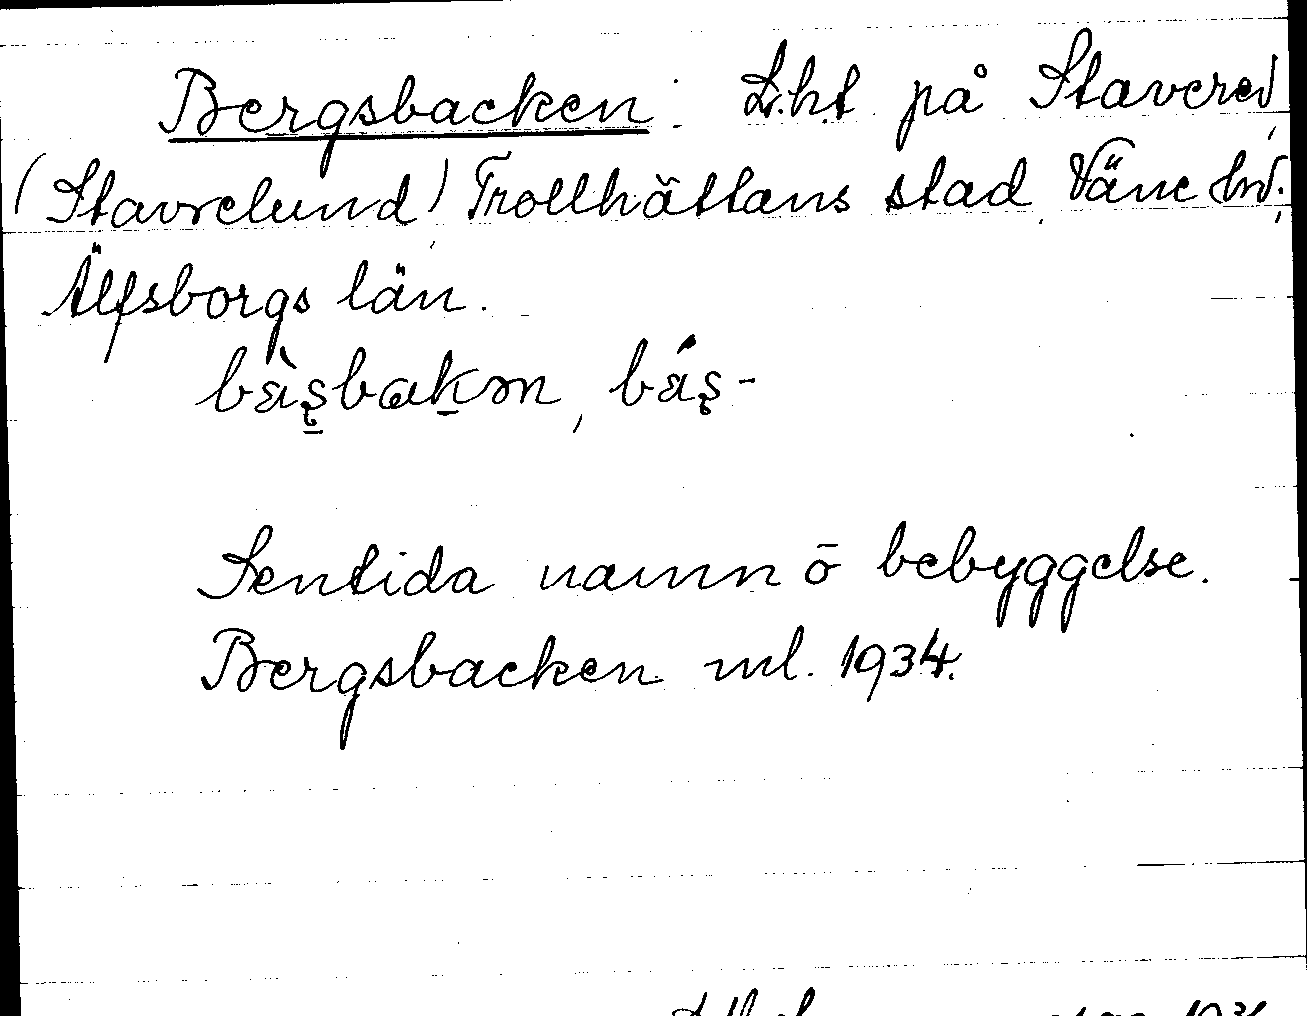 Bergsbacken: L.ht på Stavered,
(Stavrelund) Trollhättans stad, Väne hd.,
Älfsborgs län.
bæ̀ʂbakən, bǽʂ-
Sentida namn ō bebyggelse.
Bergsbacken ml. 1934.